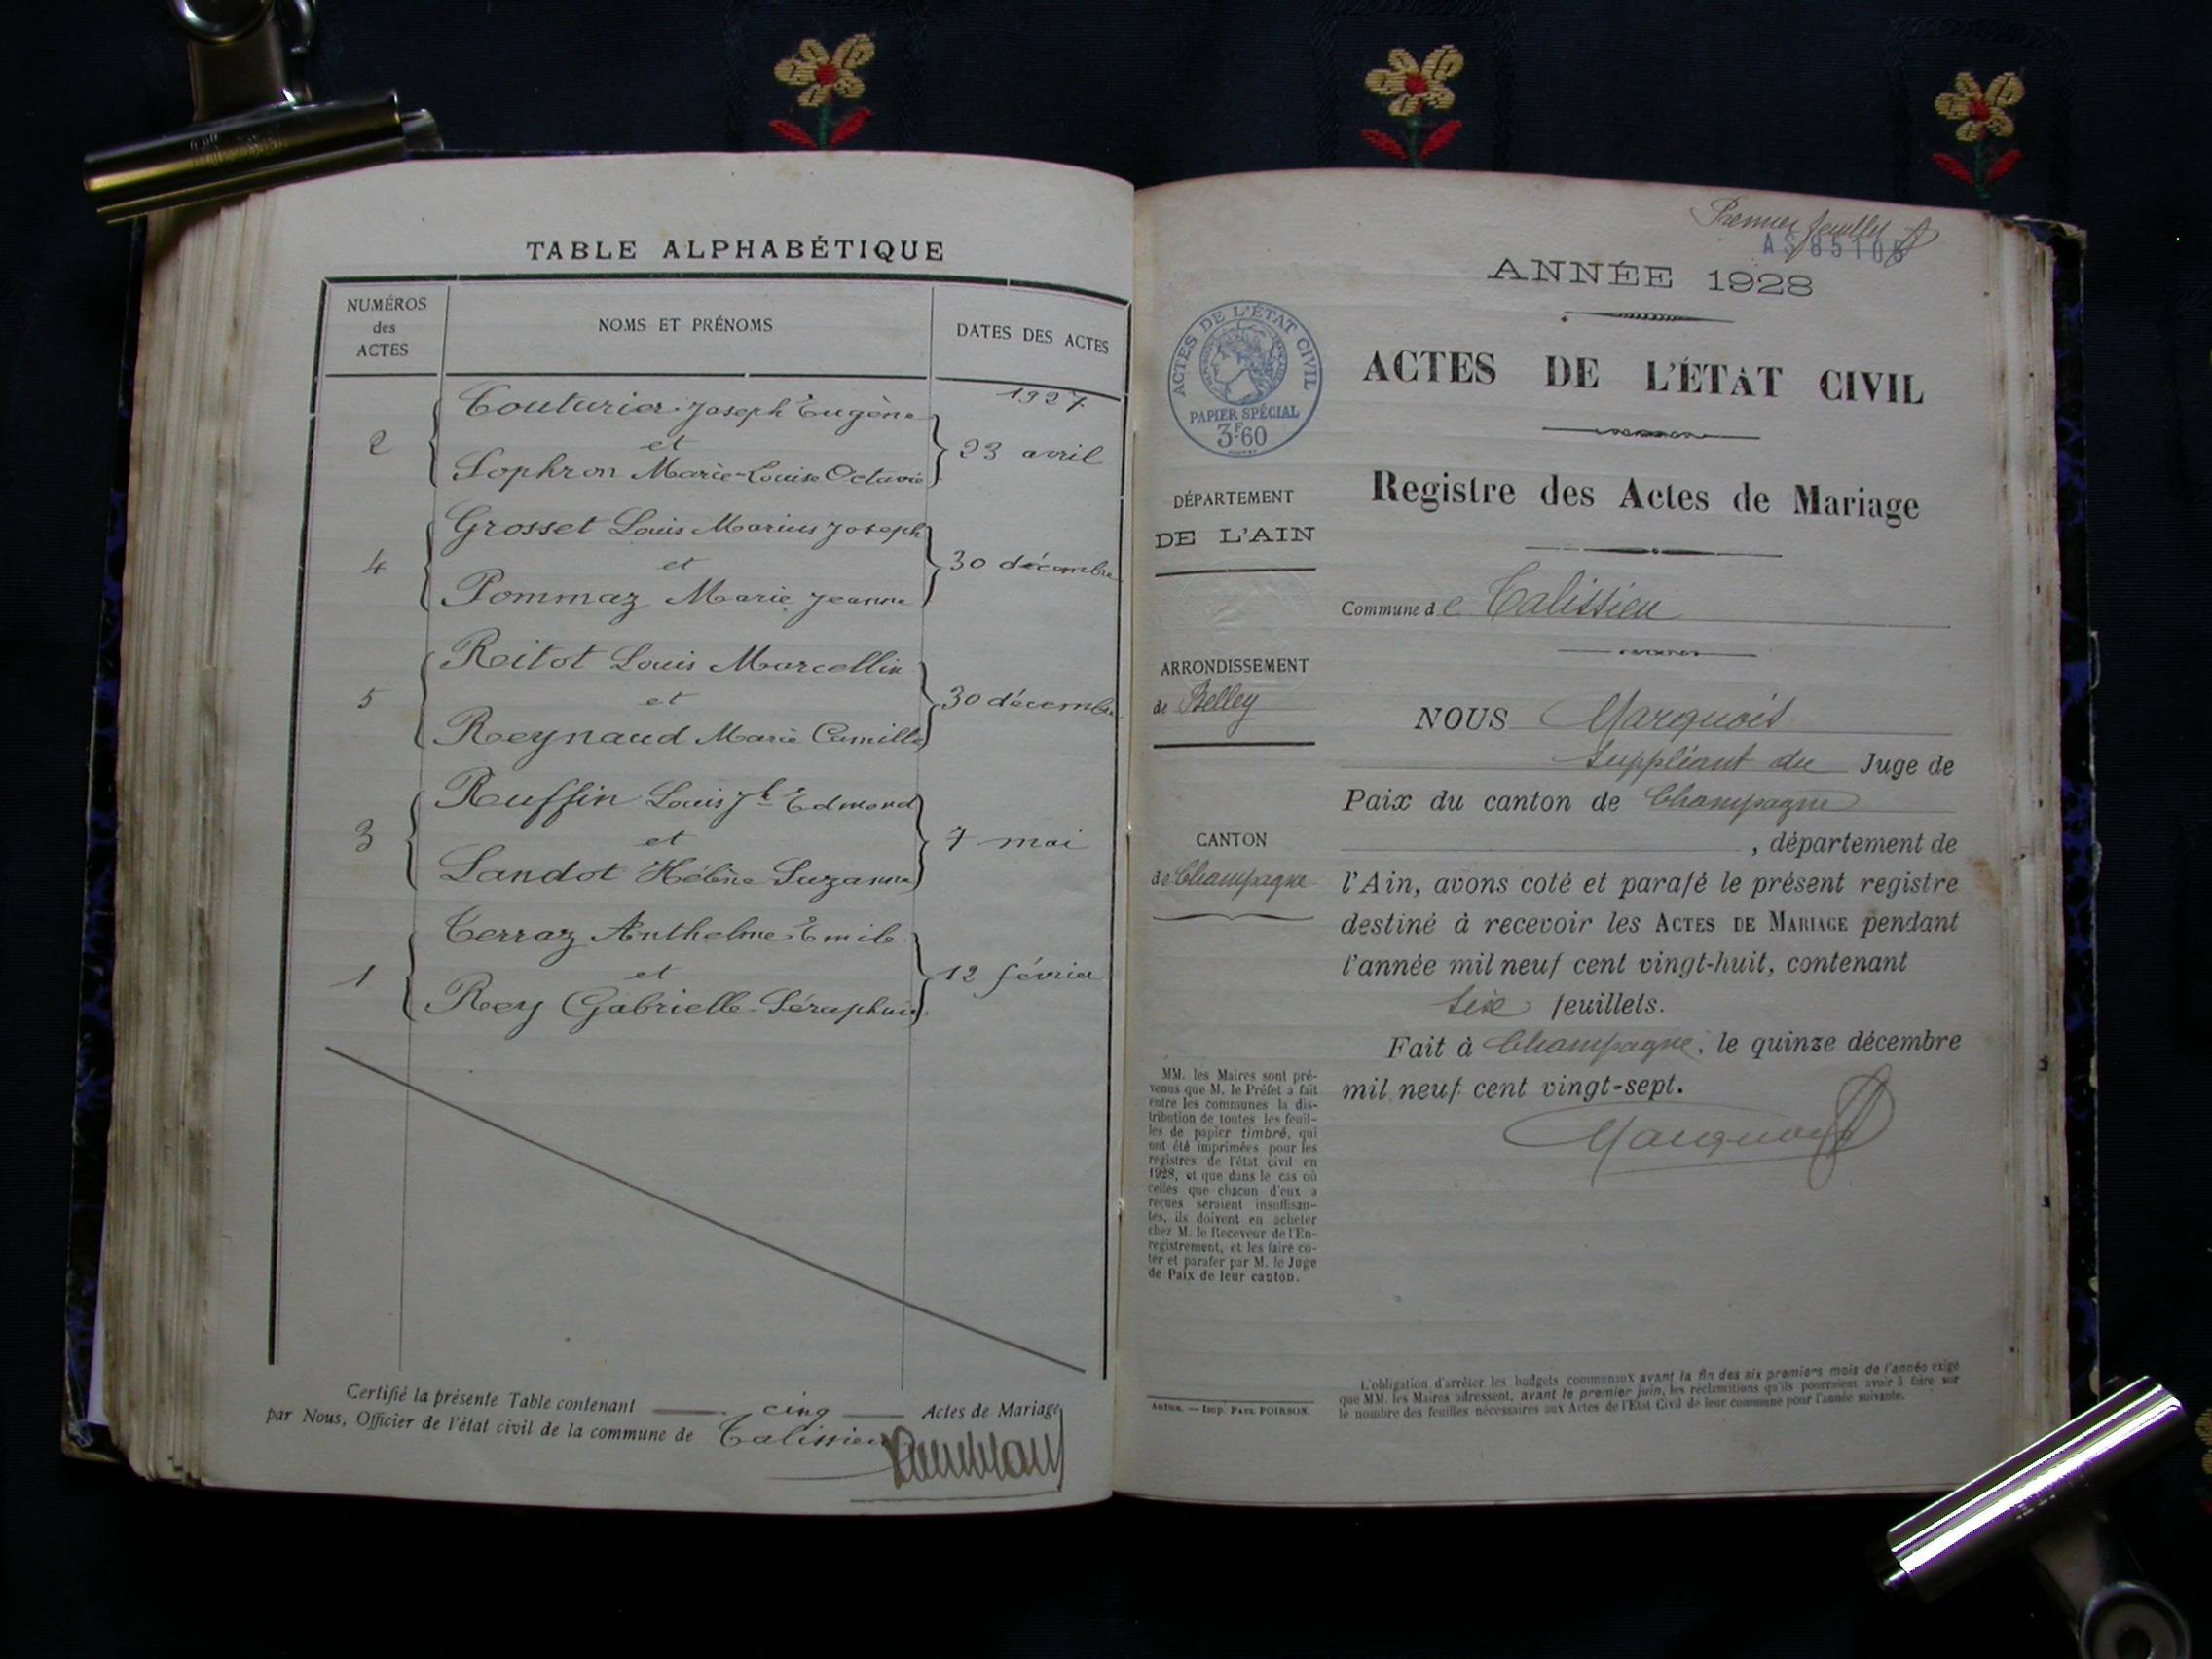 TABLE ALPHABÉTIQUE
NUMÉROS
des
ACTES
NOMS ET PRÉNOMS
DATES DES ACTES
1927
Couturier Joseph Eugène
2 et 23 avril
Sophron Marie-Louise Octavie
Grosset Louis Marius Joseph
4 et 30 décembre
Pommaz Marie Jeanne
Reitot Louis Marcellin
5 et 30 décembre
Reynaud Marie Camille
Ruffin Louis Jh Edmond
3 et 7 mai
Landot Hélène Suzanne
Terraz Anthelme Emile
1 et 12 février
Rey Gabrielle Séraphine
Certifié la présente Table contenant cinq Actes de Mariage
par Nous, Officier de l'état civil de la commune de Talissieu
Premier feuillet
AS85105
ANNÉE 1928
ACTES DE L'ÉTAT CIVIL
PAPIER SPÉCIAL
3F60
ACTES DE L'ÉTAT CIVIL
Registre des Actes de Mariage
DÉPARTEMENT
DE L'AIN
Commune de Talissieu
ARRONDISSEMENT
de Belley
NOUS Marquois
suppléant du Juge de
Paix du canton de Champagne
, département de
CANTON
de Champagne
l'Ain, avons coté et parafé le présent registre
destiné à recevoir les ACTES DE MARIAGE pendant
l'année mil neuf cent vingt-huit, contenant
six feuillets.
Fait à Champagne, le quinze décembre
mil neuf cent vingt-sept.
Marquois
MM. les Maires sont pré-
venus que M. le Préfet a fait
entre les communes la dis-
tribution de toutes les feuil-
les de papier timbré, qui
ont été imprimées pour les
registres de l'état civil en
1928, et que dans le cas où
celles que chacun d'eux a
reçues seraient insuffisan-
tes, ils doivent en acheter
chez M. le Receveur de l'En-
registrement, et les faire co-
ter et parafer par M. le Juge
de Paix de leur canton.
Autun. — Imp. PAUL POIRSON.
L'obligation d'arrêter les budgets communaux avant la fin des six premiers mois de l'année exige
que MM. les Maires adressent, avant le premier juin, les réclamations qu'ils pourraient avoir à faire sur
le nombre des feuilles nécessaires aux Actes de l'Etat Civil de leur commune pour l'année suivante.